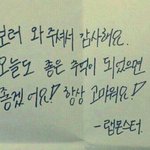 보러 와 주셔서 감사해요.
오늘도 좋은 추억이 되었으면
좋겠어요! 항상 고마워요!
-랩몬스터-